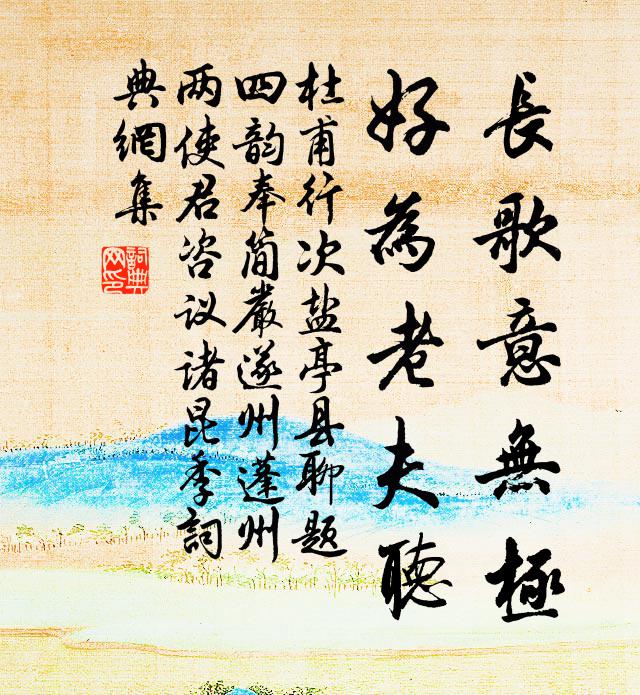 長歌意無極
好為老夫聽
杜甫行次盐亭县聊题
四韵奉简嚴遂州蓬州
两使君咨议诸昆季詞
典網集
詞典网印